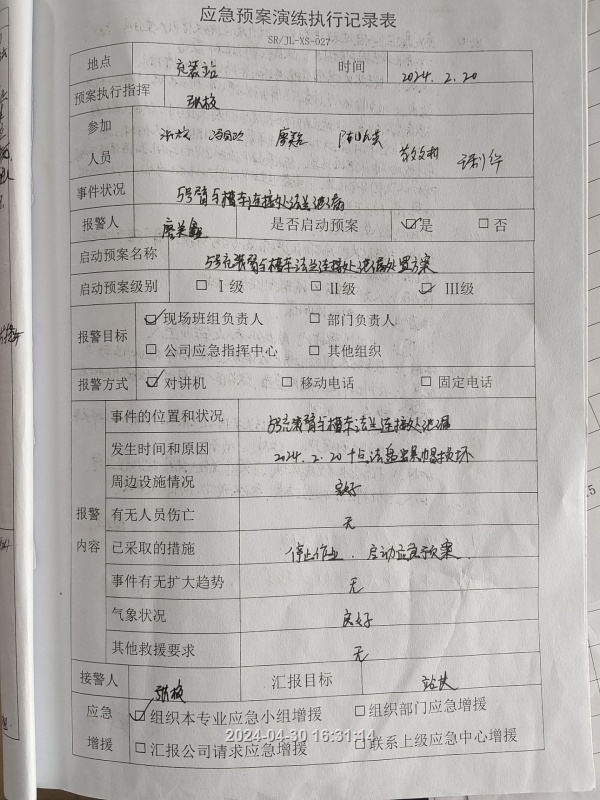 应急预案演练执行记录表
SR/JL-XS-027
地点 充装站 时间 2024.2.20
预案执行指挥 张枚
参加
人员
事件状况 5号臂与槽车连接处法兰泄漏
报警人 是否启动预案 ☑是 □否
启动预案名称 5号充装臂与槽车法兰连接处泄漏处置方案
启动预案级别 □Ⅰ级 □Ⅱ级 ☑Ⅲ级
报警目标 ☑现场班组负责人 □部门负责人
□公司应急指挥中心 □其他组织
报警方式 ☑对讲机 □移动电话 □固定电话
报警内容
事件的位置和状况 5号充装臂与槽车法兰连接处泄漏
发生时间和原因 2024.2.20 十点 法兰
周边设施情况 良好
有无人员伤亡 无
已采取的措施 停止作业、启动应急预案.
事件有无扩大趋势 无
气象状况 良好
其他救援要求 无
接警人 张枚 汇报目标 站长
应急增援 ☑组织本专业应急小组增援 □组织部门应急增援
□汇报公司请求应急增援 □联系上级应急中心增援
2024-04-30 16:31:14